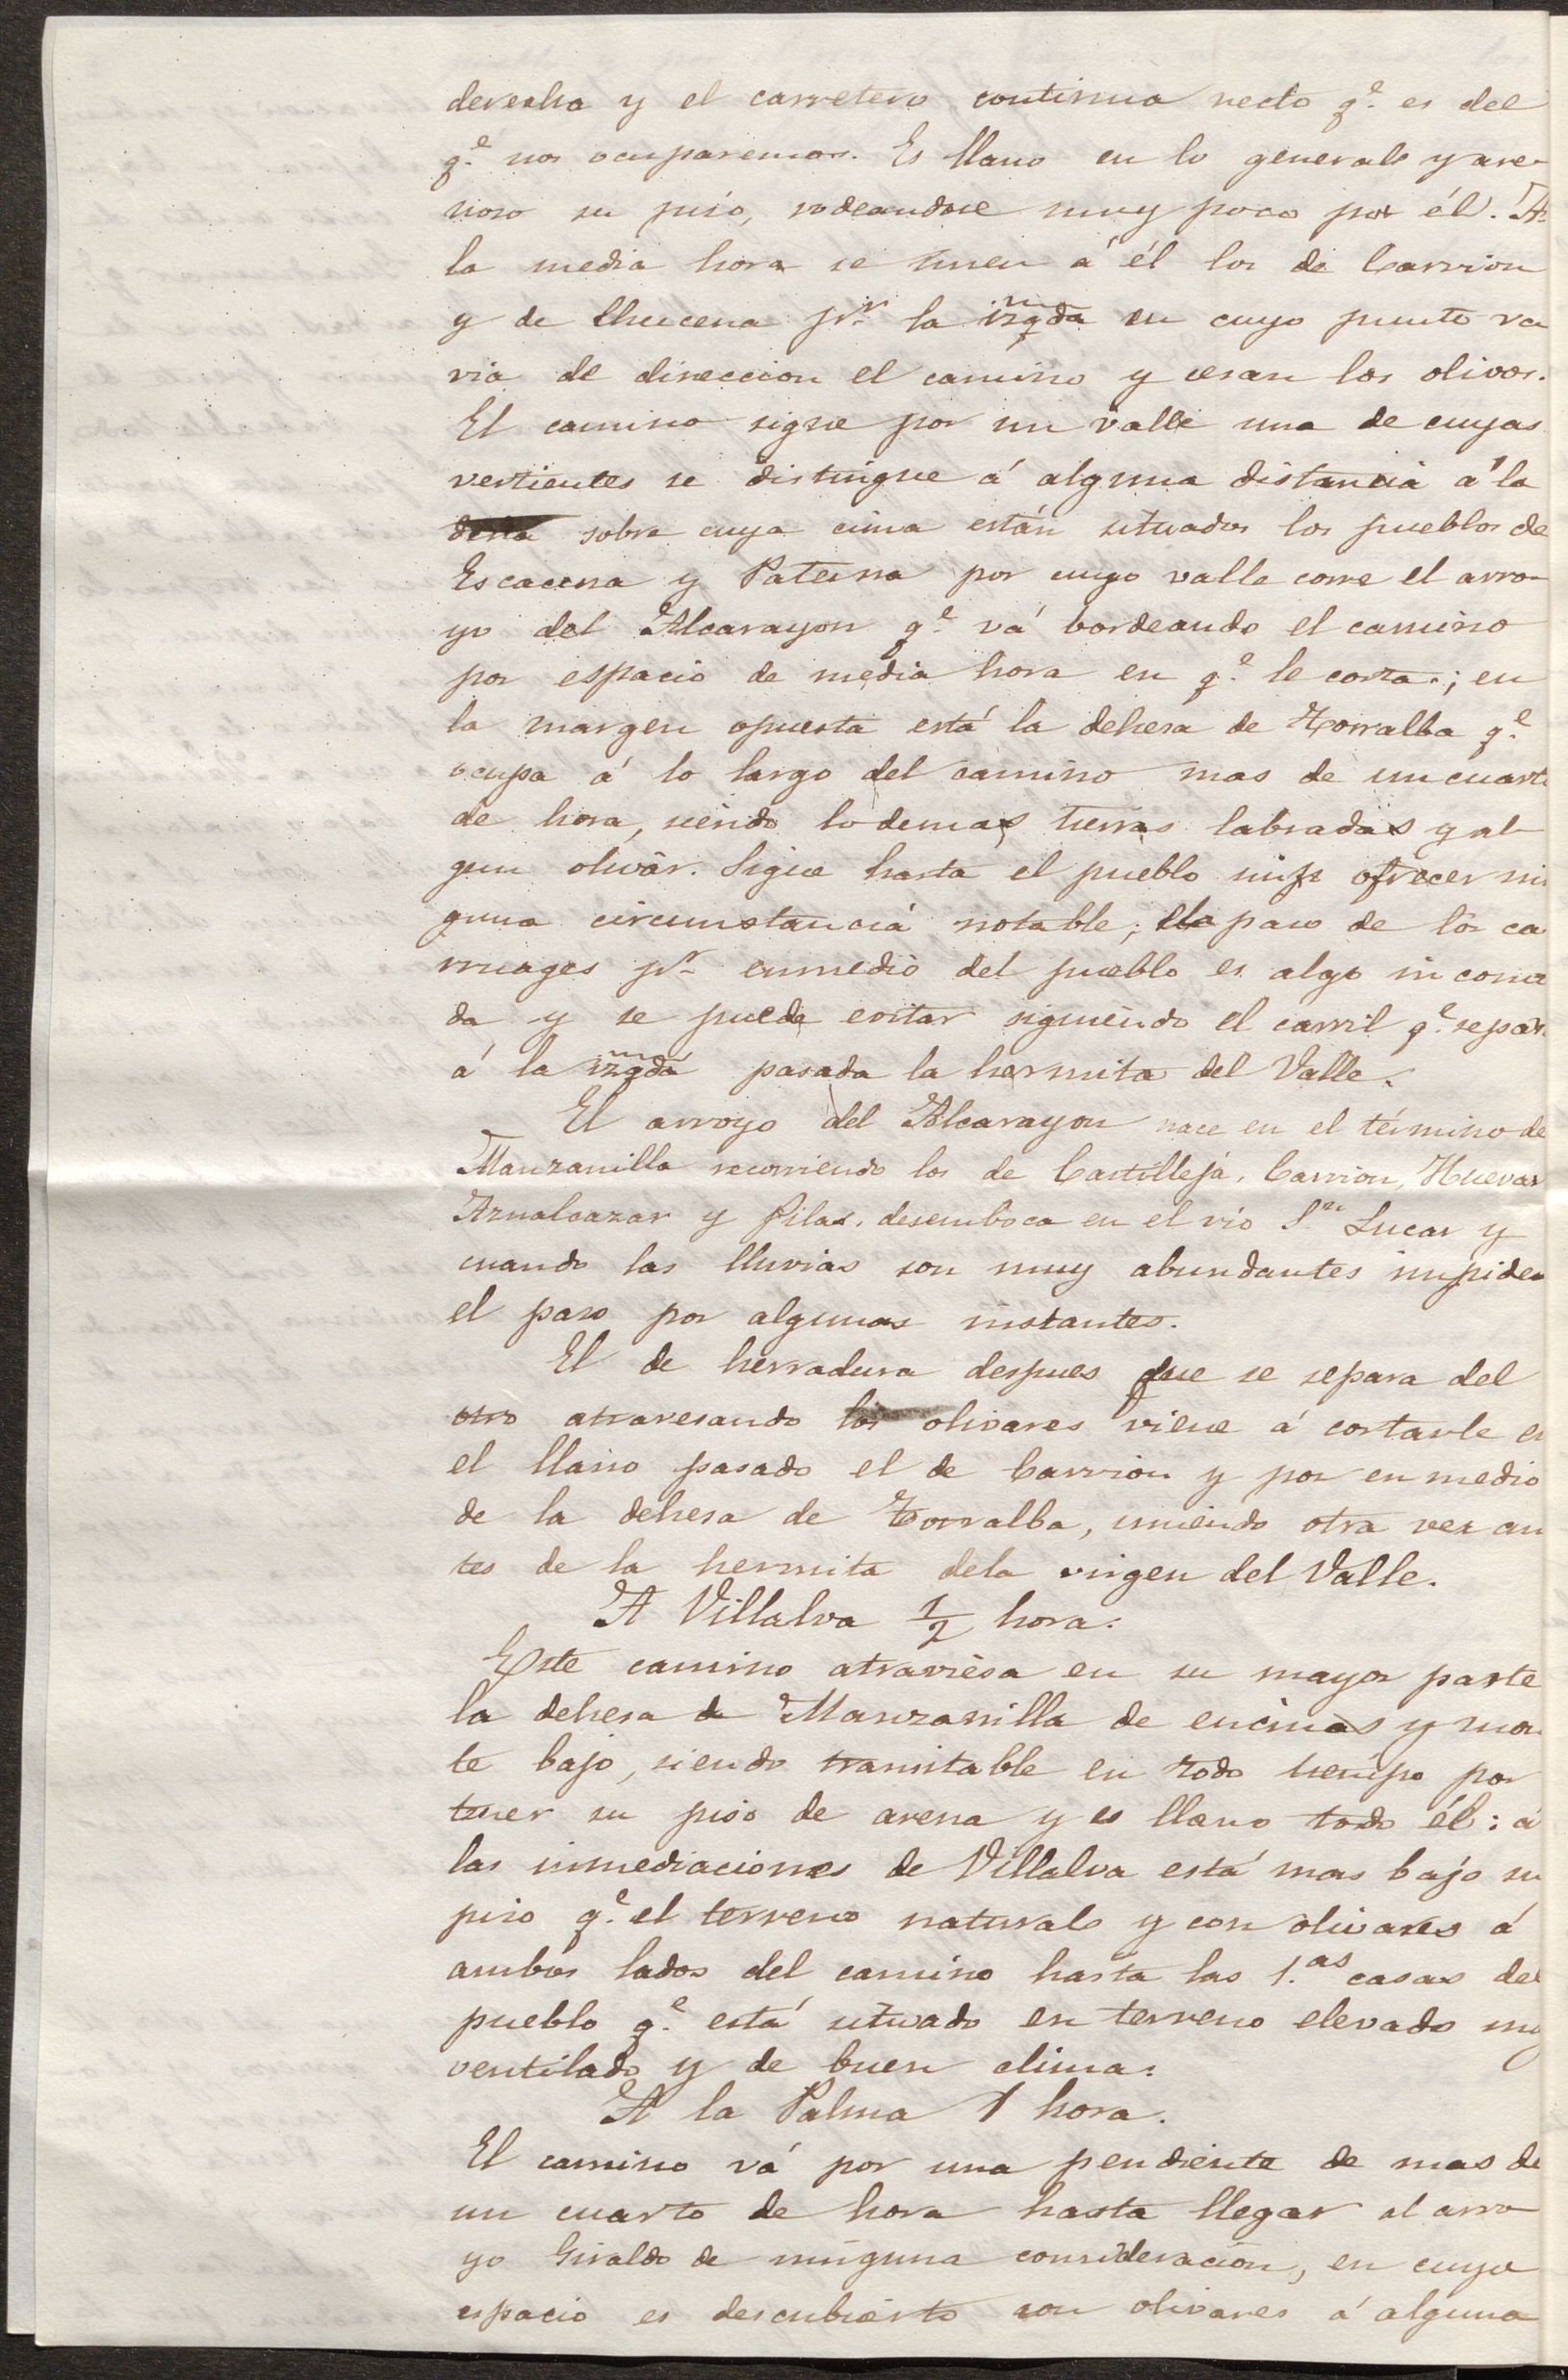 derecha y el carretero continua recto q.e es del
q.e nos ocuparemos. Es llano en lo general y are-
noso su piso, rodeandose muy poco por él. A
la media hora se unen á él los de Carrion
y de Chucena p.r la izqda en cuyo punto va
ria de direccion el camino y cesan los olivos.
El camino sigue por un valle una de cuyas
vertientes se distingue á alguna distancia á la
dcha sobre cuya cima están situados los pueblos de
Escacena y Paterna por cuyo valle corre el arro-
yo del Alcarayon q.e vá bordeando el camino
por espacio de media hora en q.e le corta; en
la margen opuesta está la dehesa de Torralba q.e
ocupa á lo largo del camino mas de un cuarto
de hora, siendo lo demas tierras labradas y al-
gun olivar. Sigue hasta el pueblo sin ofrecer nin
guna circunstancia notable; el paso de los ca
rruages p.r enmedio del pueblo es algo incomo
do y se puede evitar siguiendo el carril q.e separa
á la izqda pasada la hermita del Valle.
El arroyo del Alcarayon nace en el término de
Manzanilla recorriendo los de Castilleja, Carrion, Huevar
Aznalcazar y Pilas, desemboca en el rio S.n Lucar y
cuando las lluvias son muy abundantes impiden
el paso por algunos instantes.
El de herradura despues que se separa del
otro atravesando los olivares viene á cortarle en
el llano pasado el de Carrion y por en medio
de la dehesa de Torralba, uniendo otra vez an
tes de la hermita dela virgen del Valle.
A Villalva 1/2 hora.
Este camino atraviesa en su mayor parte
la dehesa de Manzanilla de encinas y mon
te bajo, siendo transitable en todo tiempo por
tener su piso de arena y es llano todo él: á
las inmediaciones de Villalva está mas bajo su
piso q.e el terreno natural y con olivares á
ambos lados del camino hasta las 1.as casas del
pueblo q.e está situado en terreno elevado muy
ventilado y de buen clima.
A la Palma 1 hora.
El camino vá por una pendiente de mas de
un cuarto de hora hasta llegar al arro
yo Giraldo de ninguna consideracion, en cuyo
espacio es descubierto con olivares á alguna